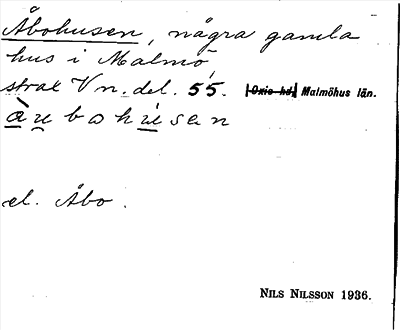 Åbohusen, några gamla
hus i Malmö,
strax V n. del. 55. Oxie hd. Malmöhus län.
àu̠bohu̠sen
el. Åbo.
NILS NILSSON 1936.